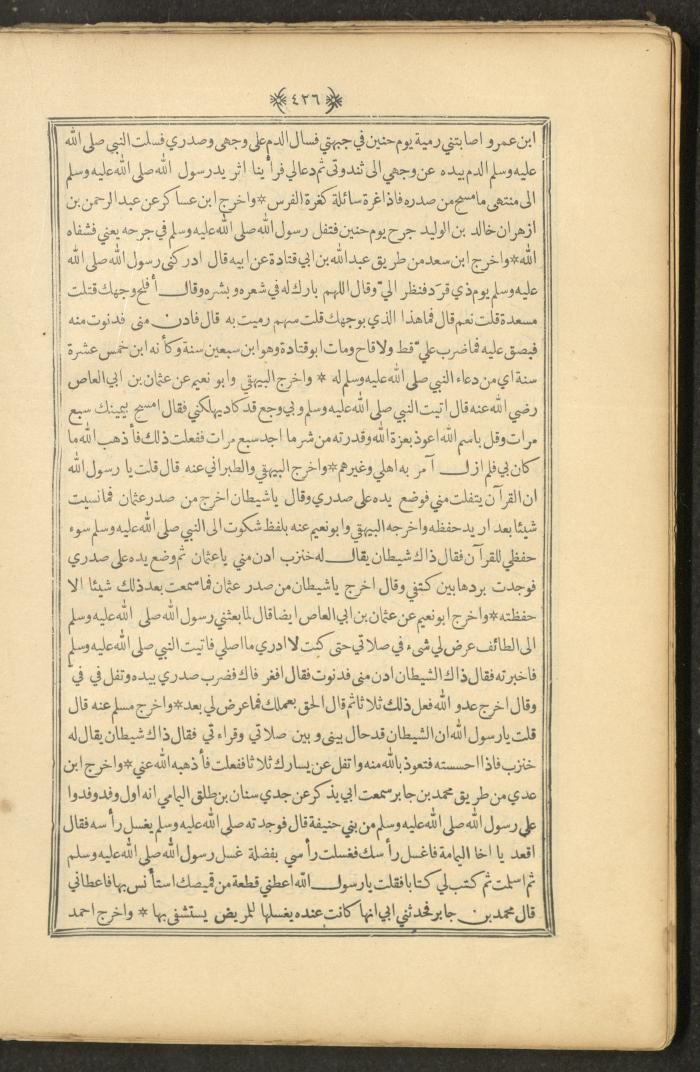 ٤٢٦
ابن عمرو اصابتني رمية يوم حنين في جبهتي فسال الدم على وجهى وصدري فسلت النبي صلى الله
عليه وسلم الدم بيده عن وجهي الى ثندوتى ثم دعالي فرأينا اثر يد رسول الله صلى الله عليه وسلم
الى منتهى ما مسح من صدره فاذا غرة سائلة كغرة الفرس * واخرج ابن عساكر عن عبد الرحمن بن
ازهر ان خالد بن الوليد جرح يوم حنين فتفل رسول الله صلى الله عليه وسلم في جرحه يعني فشفاه
الله * واخرج ابن سعد من طريق عبد الله بن ابي قتادة عن ابيه قال ادركنى رسول الله صلى الله
عليه وسلم يوم ذي قرد فنظر اليّ وقال اللهم بارك له في شعره وبشره وقال أفلح وجهك قتلت
مسعدة قلت نعم قال فما هذا الذي بوجهك قلت سهم رميت به قال فادن منى فدنوت منه
فبصق عليه فما ضرب عليّ قط ولا قاح ومات ابو قتادة وهو ابن سبعين سنة وكأنه ابن خمس عشرة
سنة اي من دعاء النبي صلى الله عليه وسلم له * واخرج البيهقي وابو نعيم عن عثمان بن ابي العاص
رضي الله عنه قال اتيت النبي صلى الله عليه وسلم وبي وجع قد كاد يهلكني فقال امسح بيمينك سبع
مرات وقل باسم الله اعوذ بعزة الله وقدرته من شر ما اجد سبع مرات ففعلت ذلك فأذهب الله ما
كان بي فلم ازل آمر به اهلي وغيرهم * واخرج البيهقي والطبراني عنه قال قلت يا رسول الله
ان القرآن يتفلت مني فوضع يده على صدري وقال ياشيطان اخرج من صدر عثمان فما نسيت
شيئا بعد اريد حفظه واخرجه البيهقي وابو نعيم عنه بلفظ شكوت الى النبي صلى الله عليه وسلم سوء
حفظي للقرآن فقال ذاك شيطان يقال له خنزب ادن مني يا عثمان ثم وضع يده على صدري
فوجدت بردها بين كتفي وقال اخرج ياشيطان من صدر عثمان فما سمعت بعد ذلك شيئا الا
حفظته * واخرج ابو نعيم عن عثمان بن ابي العاص ايضا قال لما بعثني رسول الله صلى الله عليه وسلم
الى الطائف عرض لي شىء في صلاتي حتى كنت لا ادري ما اصلي فاتيت النبي صلى الله عليه وسلم
فاخبرته فقال ذاك الشيطان ادن منى فدنوت فقال افغر فاك فضرب صدري بيده وتفل في فيّ
وقال اخرج عدو الله فعل ذلك ثلاثا ثم قال الحق بعملك فما عرض لي بعد * واخرج مسلم عنه قال
قلت يا رسول الله ان الشيطان قد حال بينى وبين صلاتي وقراءتي فقال ذاك شيطان يقال له
خنزب فاذا احسسته فتعوذ بالله منه واتفل عن يسارك ثلاثا ففعلت فأذهبه الله عني * واخرج ابن
عدي من طريق محمد بن جابر سمعت ابي يذكر عن جدي سنان بن طلق اليمامي انه اول وفد وفدوا
على رسول الله صلى الله عليه وسلم من بني حنيفة قال فوجدته صلى الله عليه وسلم يغسل رأسه فقال
اقعد يا اخا اليمامة فاغسل رأسك فغسلت رأسي بفضلة غسل رسول الله صلى الله عليه وسلم
ثم اسلمت ثم كتب لي كتابا فقلت يا رسول الله اعطني قطعة من قميصك استأنس بها فاعطاني
قال محمد بن جابر فحدثني ابي انها كانت عنده يغسلها للمريض يستشفى بها * واخرج احمد